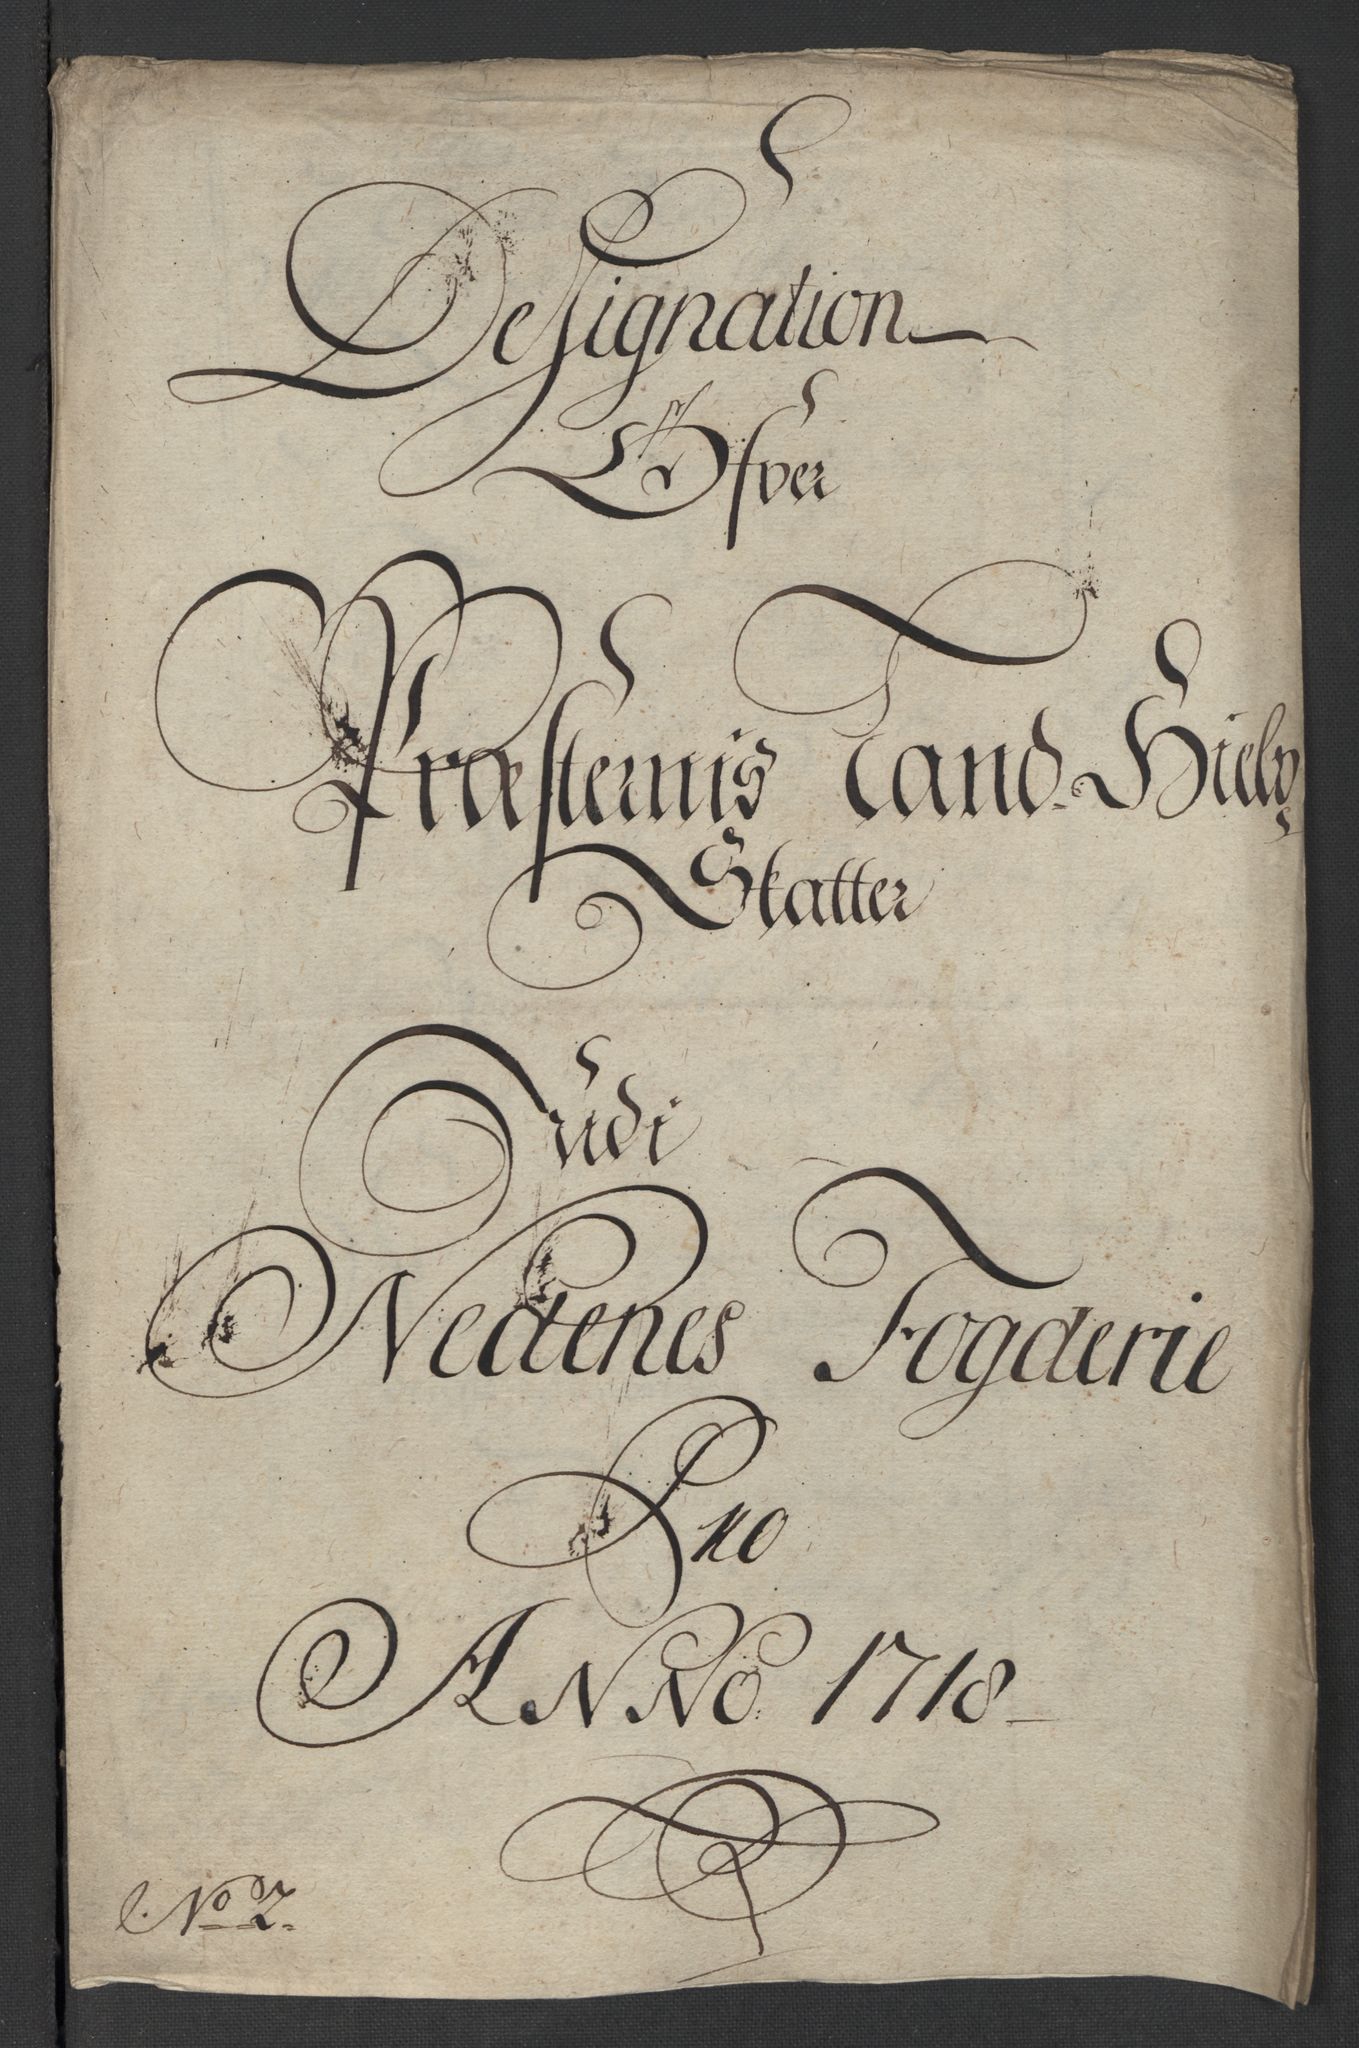 Designation
Ofver
Præsternis Tand-Hielp
Skatter
udi
Nedenes Fogderie
Pro
ANNO 1718
No 7.